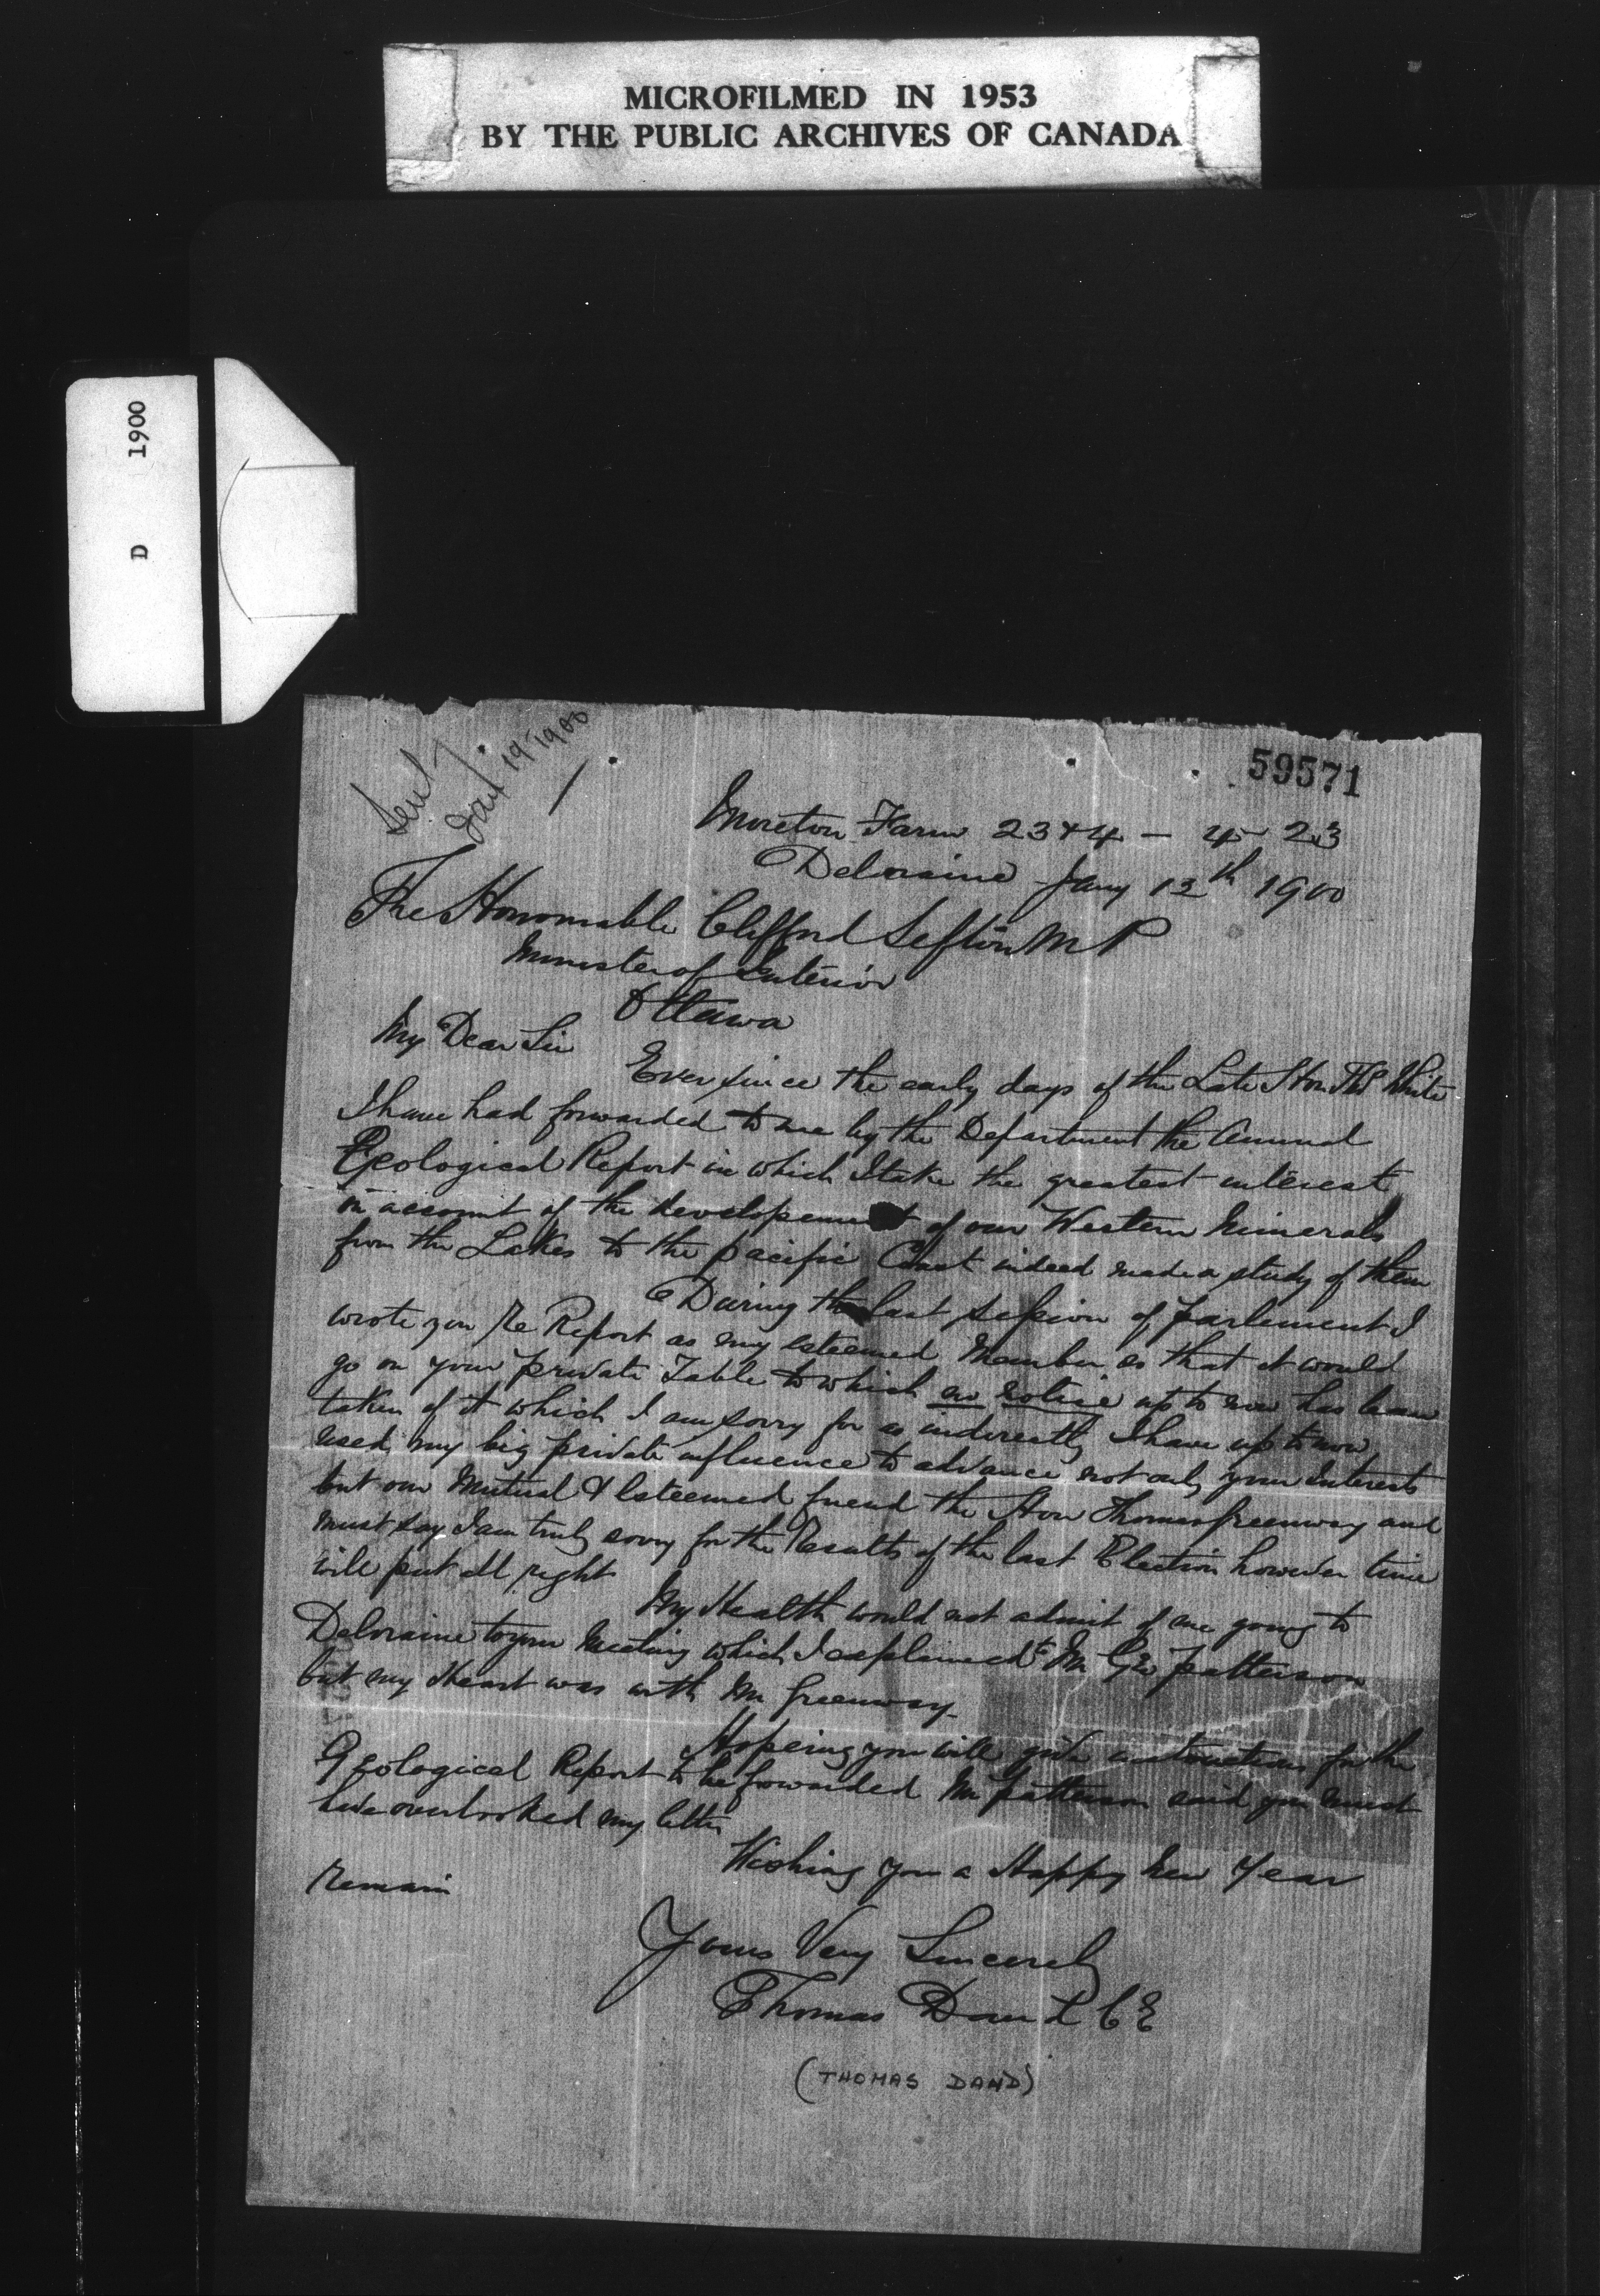 MICROFILMED IN 1953
BY THE PUBLIC ARCHIVES OF CANADA
D 1900
Sent
Jany 19 1900
59571
Moreton Farm 23 & 4 - 4 - 23
Deloraine Jany 12th 1900
The Honorable Clifford Sefton M P
Minister of Interior
Ottawa
My Dear Sir
Ever since the early days of the Late Hon Thos White
I have had forwarded to me by the Department the Annual
Geological Report in which I take the greatest interest
on account of the developement of our Western Minerals
from the Lakes to the pacific Coast indeed made a study of them
During the last session of parlement I
wrote you Re Report as my esteemed Member so that it would
go on your private Table to which no notice up to now has been
taken of it which I am sorry for as indirectly I have up to now
used my big private influence to advance not only your Interests
but our Mutual & Esteemed friend the Hon Thomas Greenway and
must say I am truly sorry for the Results of the last Election however time
will put all right
My Health would not admit of me going to
Deloraine to your Meeting which I explained to Mr Geo patterson
but my Heart was with Mr Greenway
Hopeing you will give instructions for the
Geological Report to be forwarded Mr patterson said you must
have overlooked my letter
Wishing you a Happy New Year
Remain
Yours Very Sincerely
Thomas Dand C E
(THOMAS DAND)